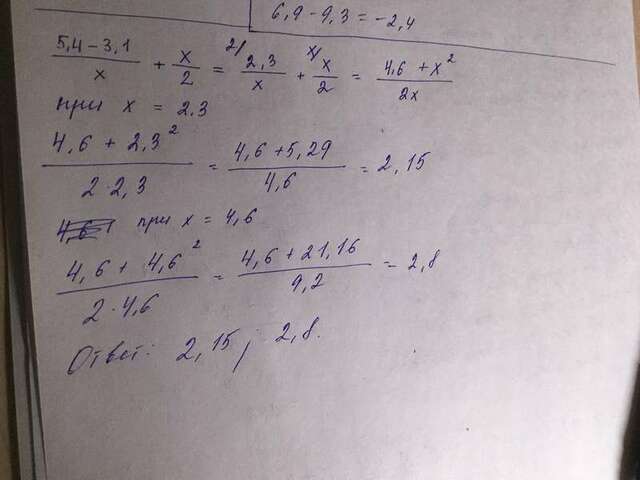 6,9 - 9,3 = -2,4
(5,4 - 3,1)/x + x/2 = 2/ 2,3/x + x/ x/2 = (4,6 + x²)/2x
при x = 2.3
(4,6 + 2,3²)/(2·2,3) = (4,6 + 5,29)/4,6 = 2,15
при x = 4,6
(4,6 + 4,6²)/(2·4,6) = (4,6 + 21,16)/9,2 = 2,8
Ответ: 2,15; 2,8.